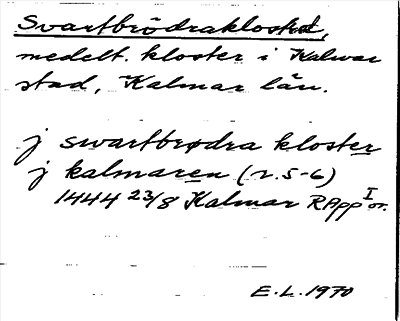 Svartbrödraklostret,
medelt. kloster i Kalmar
stad, Kalmar län.
j swartbrødra kloster
j kalmaren (r. 5-6)
1444 23/8 Kalmar RAppI or.
E.L. 1970